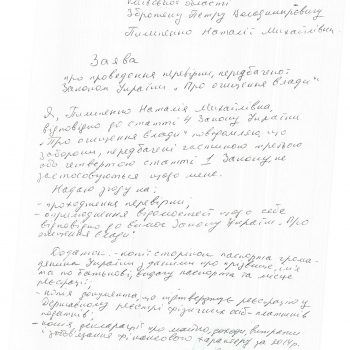 Київської області
Зброжку Петру Володимировичу
Пилипенко Наталії Михайлівни
Заява
про проведення перевірки, передбаченої
Законом України „Про очищення влади"
Я, Пилипенко Наталія Михайлівна,
відповідно до статті 4 Закону України
„Про очищення влади" повідомляю, що
заборони, передбачені частиною третьою
або четвертою статті 1 Закону, не
застосовуються щодо мене.
Надаю згоду на:
- проходження перевірки;
- оприлюднення відомостей щодо себе
відповідно до вимог Закону України „Про
очищення влади".
Додаток: - копії сторінок паспорта грома-
дянина України з даними про прізвище, ім'я
та по батькові, видачу паспорта та місце
реєстрації;
- копія документа, що підтверджує реєстрацію у
Державному реєстрі фізичних осіб-платників
податків;
- копія декларації про майно, доходи, витрати
і зобов'язання фінансового характеру за 2014 р.